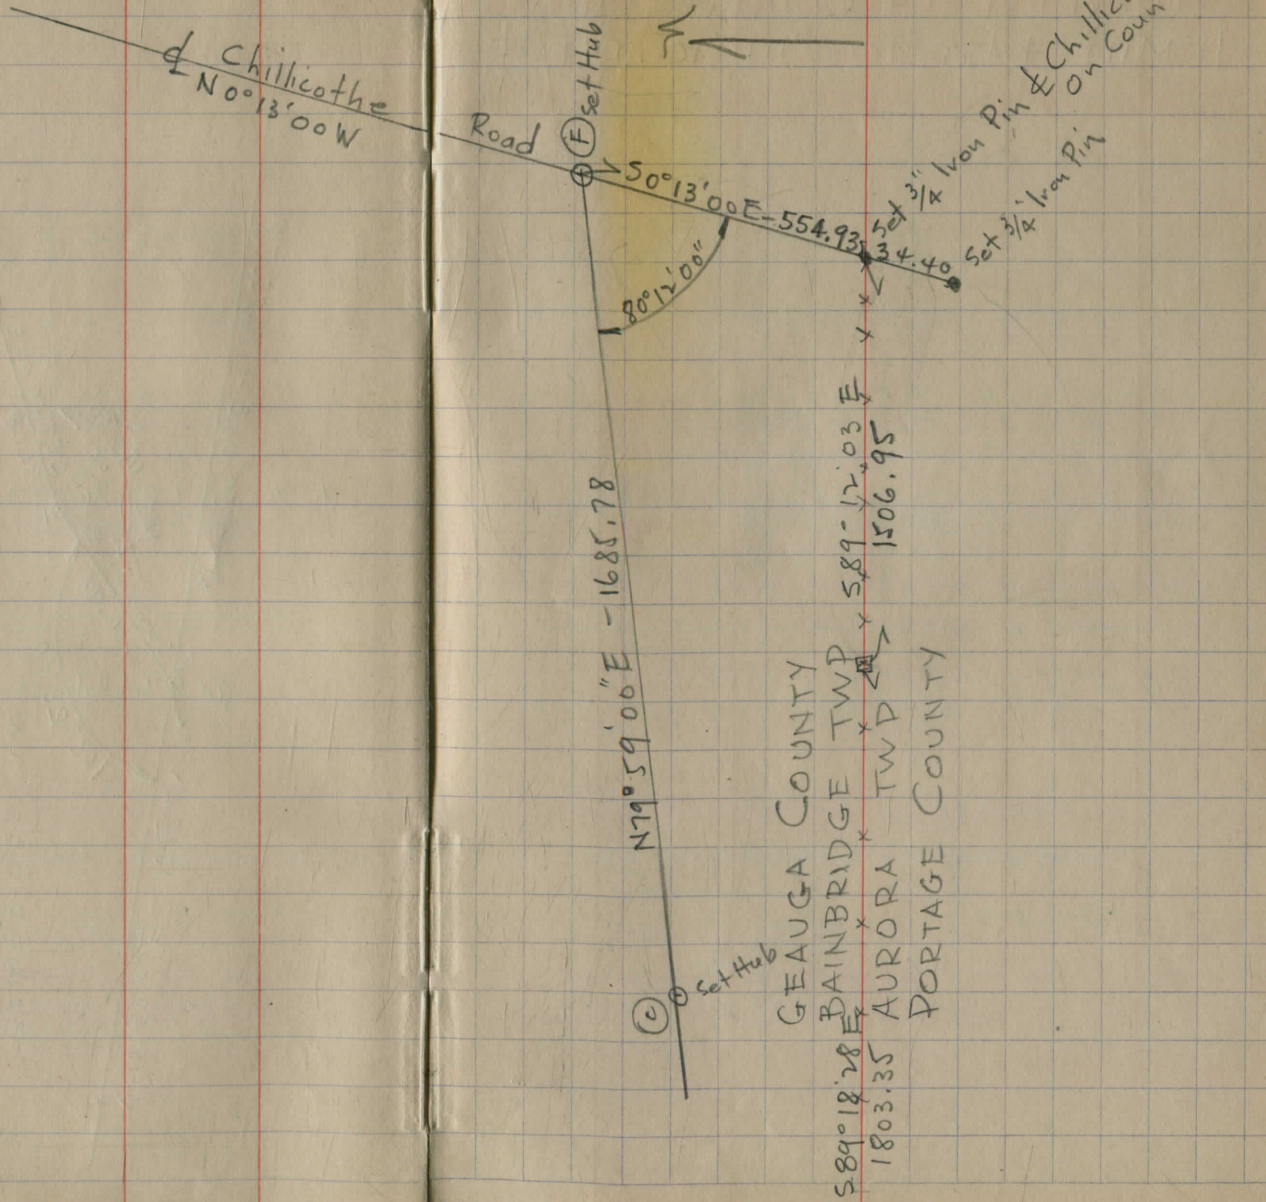 ℄ Chillicothe
Road
N 0°13'00 W
F
Set Hub
S 0°13'00 E - 554.93
34.40
Set 3/4" Iron Pin ℄
On
Set 3/4" Iron Pin
80°12'00"
N79°59'00"E - 1685.78
C
Set Hub
S89-12.03 E
1506.95
GEAUGA COUNTY
BAINBRIDGE TWP
AURORA TWP
PORTAGE COUNTY
S89°18'28 E
1803.35